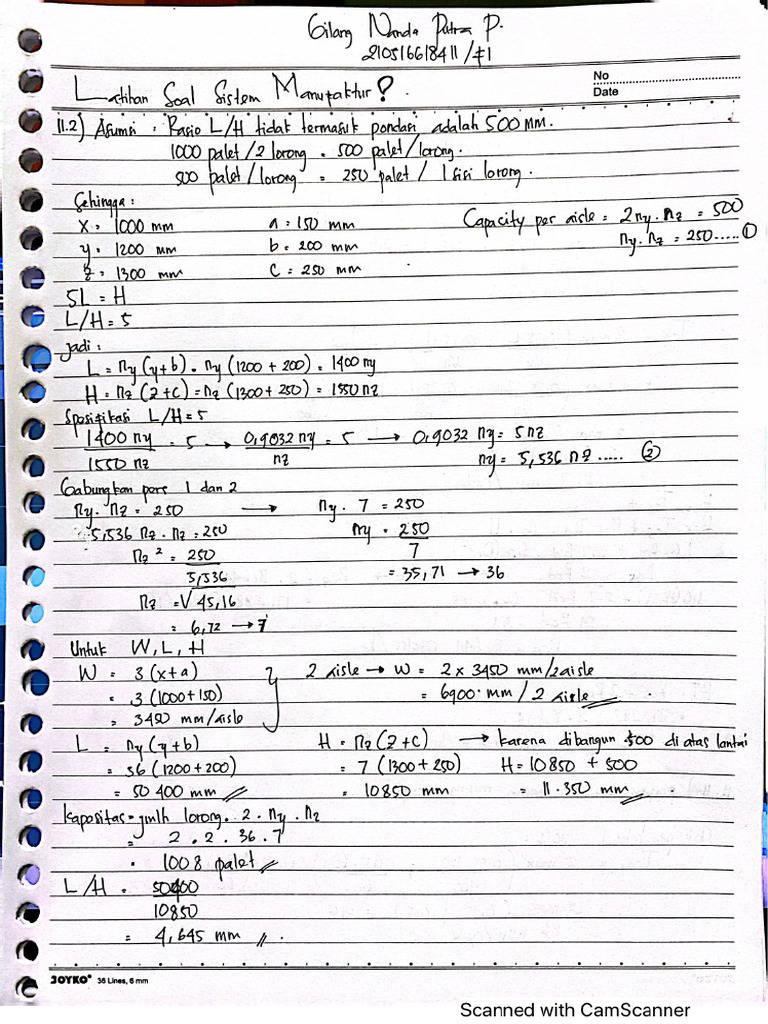 Gilang Nanda Putra P.
210516618411/F1
No
Date
Latihan Soal Sistem Manufaktur?
11.2) Asumsi : Rasio L/H tidak termasuk pondasi adalah 500 mm.
1000 palet/2 lorong = 500 palet/lorong.
500 palet/lorong = 250 palet / 1 sisi lorong.
Sehingga :
x = 1000 mm a = 150 mm Capacity per aisle = 2ny. nz = 500
y = 1200 mm b = 200 mm ny. nz = 250.....①
z = 1300 mm c = 250 mm
5L = H
L/H = 5
Jadi :
L = ny (y+b) = ny (1200 + 200) = 1400 ny
H = nz (z+c) = nz (1300 + 250) = 1550 nz
Spesifikasi L/H = 5
1400 ny / 1550 nz = 5 → 0,9032 ny / nz = 5 → 0,9032 ny = 5nz
ny = 5,536 nz ..... ②
Gabungkan pers 1 dan 2
ny. nz = 250 → ny . 7 = 250
5,536 nz . nz = 250 ny = 250 / 7
nz² = 250 / 5,536 = 35,71 → 36
nz = √45,16
= 6,72 → 7
Untuk W, L, H
W = 3 (x+a) } 2 aisle → W = 2 x 3450 mm/2aisle
= 3 (1000+150) = 6900 mm / 2 aisle
= 3450 mm/aisle
L = ny (y+b) H = nz (z+c) → karena dibangun 500 di atas lantai
= 36 (1200+200) = 7 (1300 + 250) H = 10850 + 500
= 50 400 mm = 10850 mm = 11.350 mm
Kapasitas = jmlh lorong . 2 . ny . nz
= 2 . 2 . 36 . 7
= 1008 palet
L/H = 50400 / 10850
= 4,645 mm
JOYKO® 36 Lines, 6 mm
Scanned with CamScanner